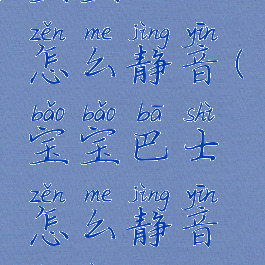 zěn me jìng yīn
怎么静音(
bǎo bǎo bā shì
宝宝巴士
zěn me jìng yīn
怎么静音